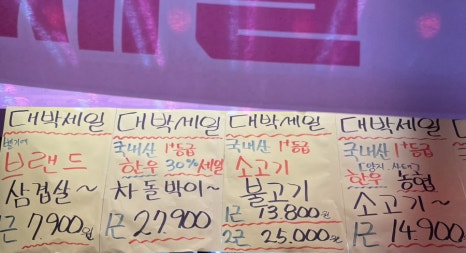 대박세일
벨기에
브랜드
삼겹살~
1근 7900원
대박세일
국내산 1+등급
한우 30%세일
차돌박이~
1근 27.900
대박세일
국내산 1+등급
소고기
불고기
1근 13.800원
2근 25.000원
대박세일
국내산 1+등급
「양지, 사태」
한우 농협
소고기~
1근 14.900